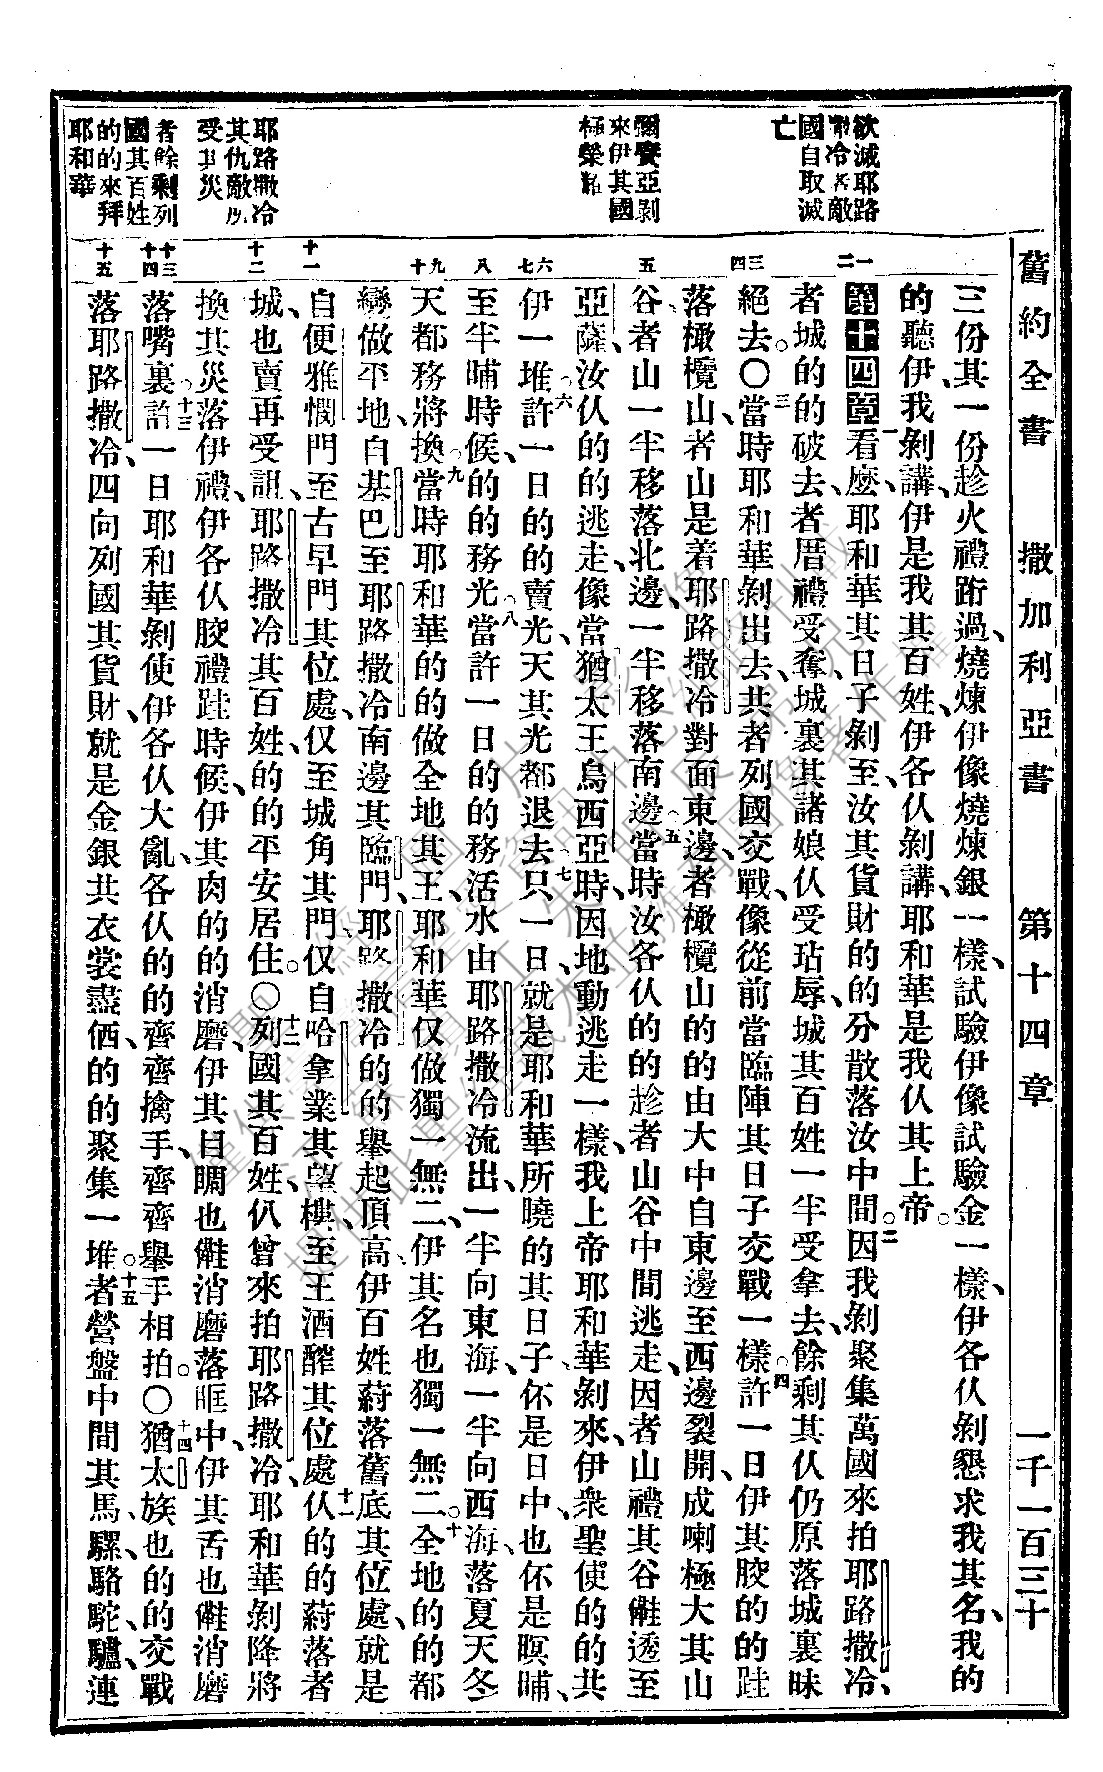 舊約全書　撒加利亞書　第十四章　一千一百三十
欲滅耶路
撒冷各敵
國自取滅
亡
彌賽亞剝
來伊其國
極榮耀
耶路撒冷
其仇敵
受其災
者餘剩列
國其百姓
的的來拜
耶和華
一
二
三
四
五
六
七
八
九
十
十一
十二
十三
十四
十五
三份其一份趁火禮跨過、燒煉伊像燒煉銀一樣、試驗伊像試驗金一樣、伊各仈剝懇求我其名、我的
的聽伊我剝講、伊是我其百姓、伊各仈剝講、耶和華是我仈其上帝。
第十四章一看麼、耶和華其日子剝至、汝其貨財的的分散落汝中間。二因我剝聚集萬國來拍耶路撒冷、
者城的的破去、者厝禮受奪、城裏其諸娘仈受玷辱、城其百姓一半受拿去、餘剩其仈仍原落城裏昧
絕去。〇三當時耶和華剝出去、共者列國交戰、像從前當臨陣其日子交戰一樣。四許一日伊其胶的的跬
落橄欖山、者山是着耶路撒冷對面東邊、者橄欖山的的由大中自東邊至西邊裂開、成喇極大其山
谷、者山一半移落北邊、一半移落南邊。五當時汝各仈的的趁者山谷中間逃走、因者山禮其谷㒰透至
亞薩、汝仈的的逃走、像當猶太王烏西亞時、因地動逃走一樣、我上帝耶和華剝來、伊衆聖使的的共
伊一堆。六許一日的的賣光、天其光都退去。七只一日、就是耶和華所曉的其日子、伓是日中、也伓是暝晡、
至半晡時候、的的務光。八當許一日的的務活水由耶路撒冷流出、一半向東海、一半向西海、落夏天冬
天都務、將換。九當時耶和華的的做全地其王、耶和華仅做獨一無二、伊其名也獨一無二。十全地的的都
變做平地、自基巴至耶路撒冷南邊其臨門、耶路撒冷的的舉起頂高、伊百姓蒔落舊底其位處、就是
自便雅憫門、至古早門其位處、仅至城角其門、仅自哈拿業其望樓、至王酒醡其位處。十一仈的的蒔落者
城、也賣再受詛、耶路撒冷其百姓、的的平安居住。〇十二列國其百姓、仈曾來拍耶路撒冷、耶和華剝降將
換其災落伊禮、伊各仈胶禮跬時候、伊其肉的的消磨、伊其目睭也㒰消磨落眶中、伊其舌也㒰消磨
落嘴裏。十三許一日耶和華剝使伊各仈大亂、各仈的的齊齊擒手、齊齊舉手相拍。〇十四猶太族也的的交戰
落耶路撒冷、四向列國其貨財、就是金銀共衣裳盡価的的聚集一堆。十五者營盤中間其馬、騾、駱駝、驢、連